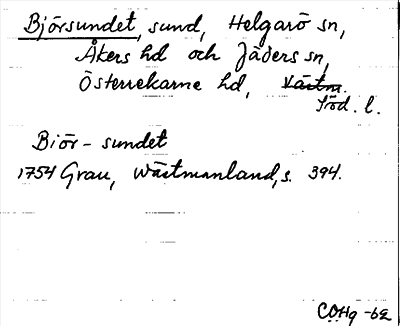 Björsundet, sund, Helgarö sn,
Åkers hd och Jäders sn,
Österrekarne hd, Västm.
Söd. l.
Biör-sundet
1754 Grau, Wästmanland, s. 394.
COHq -62